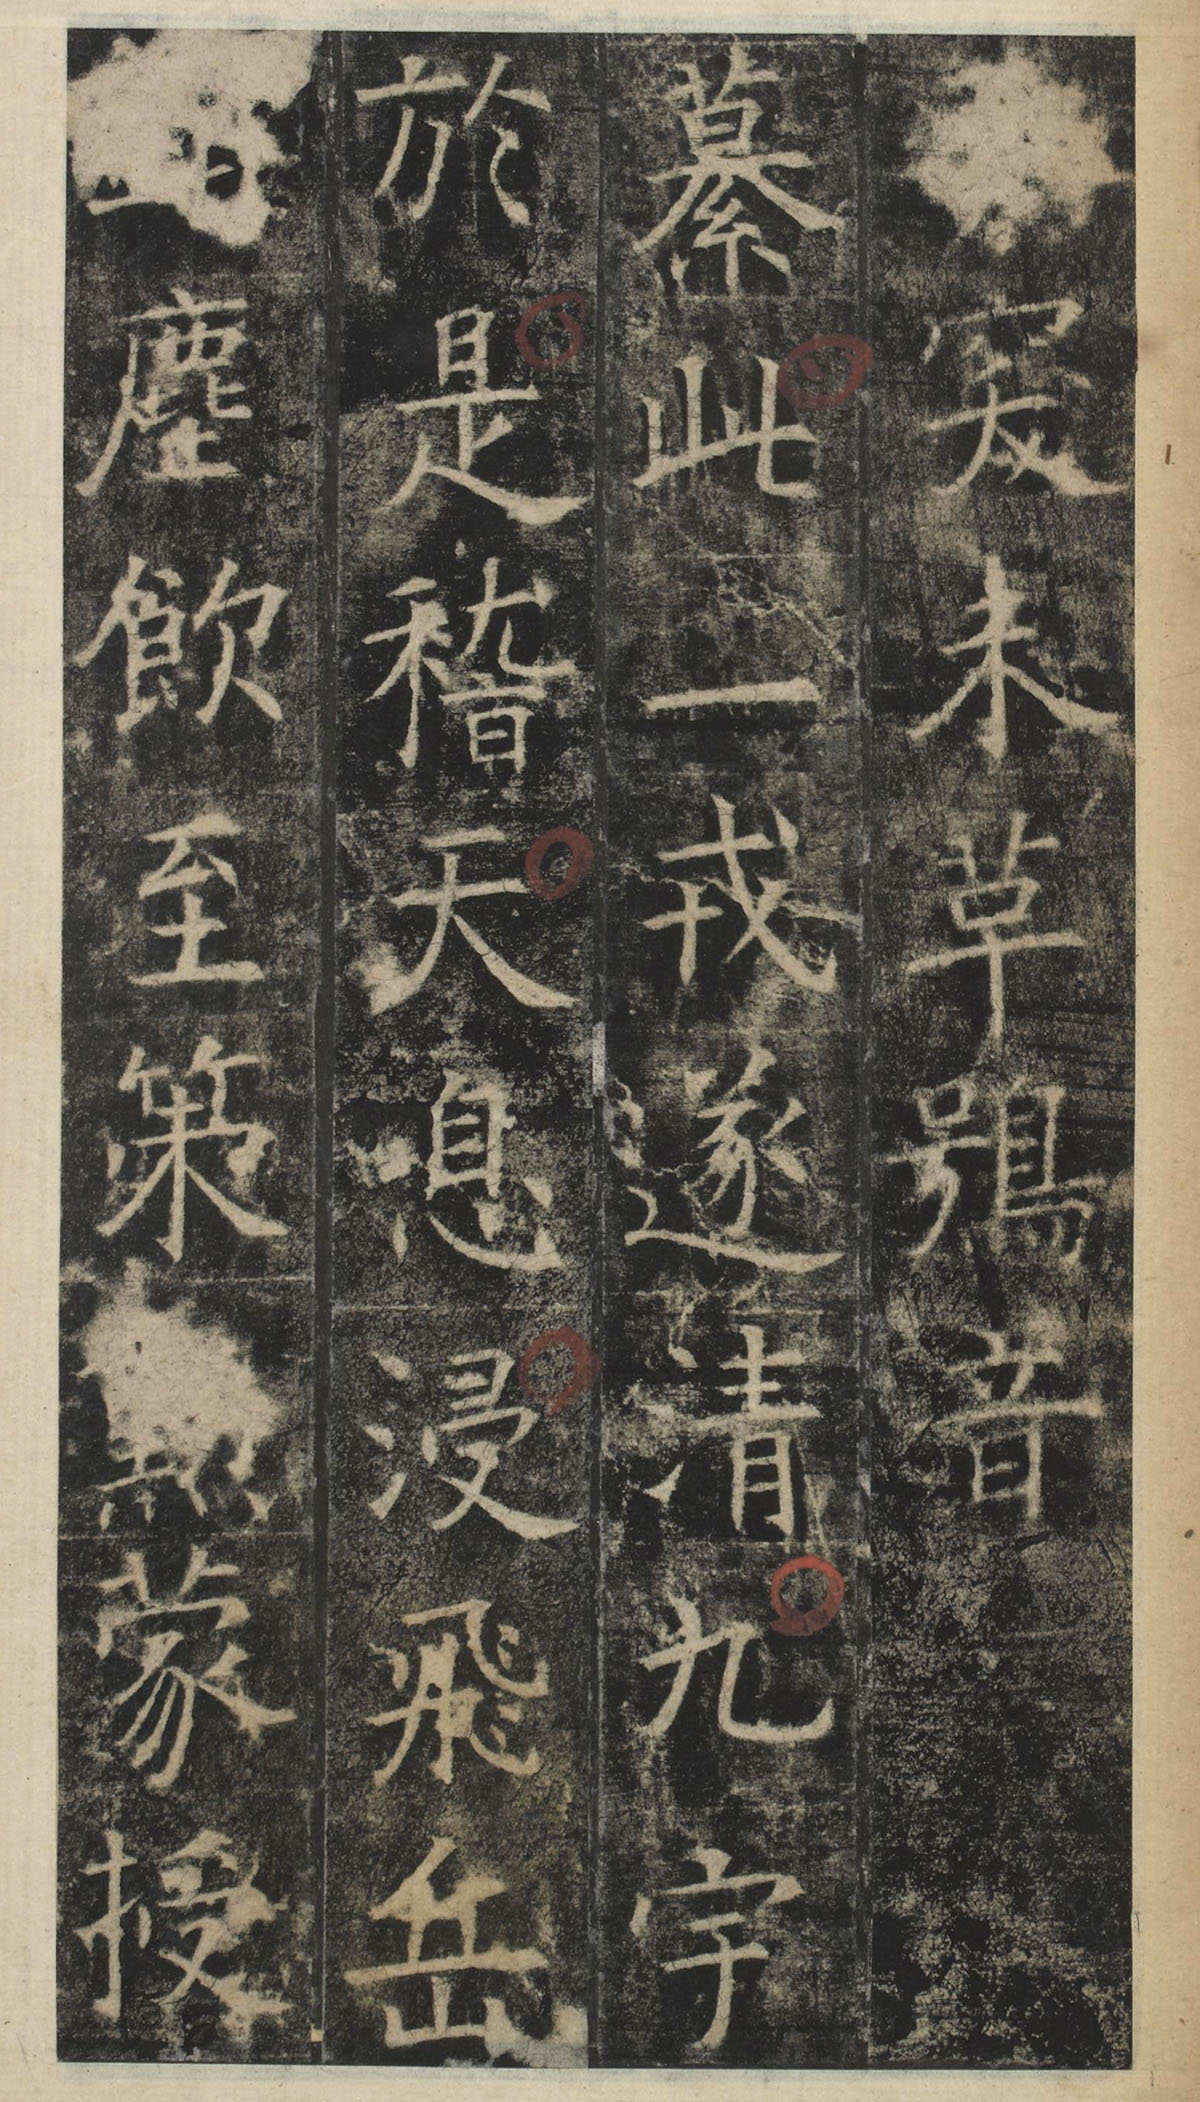 未草鴞音
纂此一戎遂清九宇
於是稽天息浸飛岳
塵飲至策蒙授